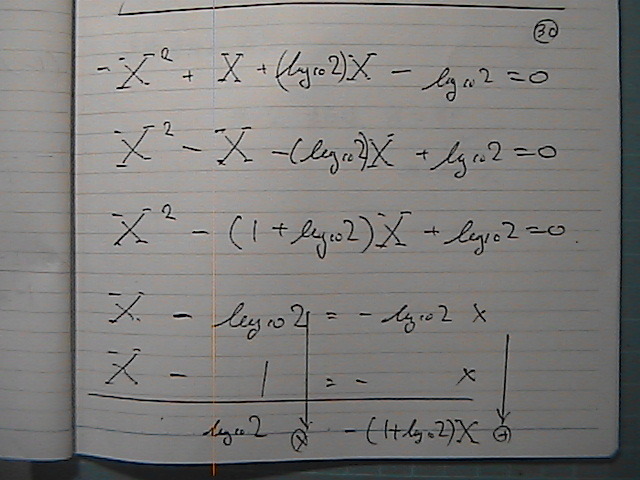 30
-X² + X + (log₁₀2)X - log₁₀2 = 0
X² - X - (log₁₀2)X + log₁₀2 = 0
X² - (1 + log₁₀2)X + log₁₀2 = 0.
X - log₁₀2 = - log₁₀2 x
X - 1 = - x
log₁₀2 ⊗ - (1+log₁₀2)X ⊕